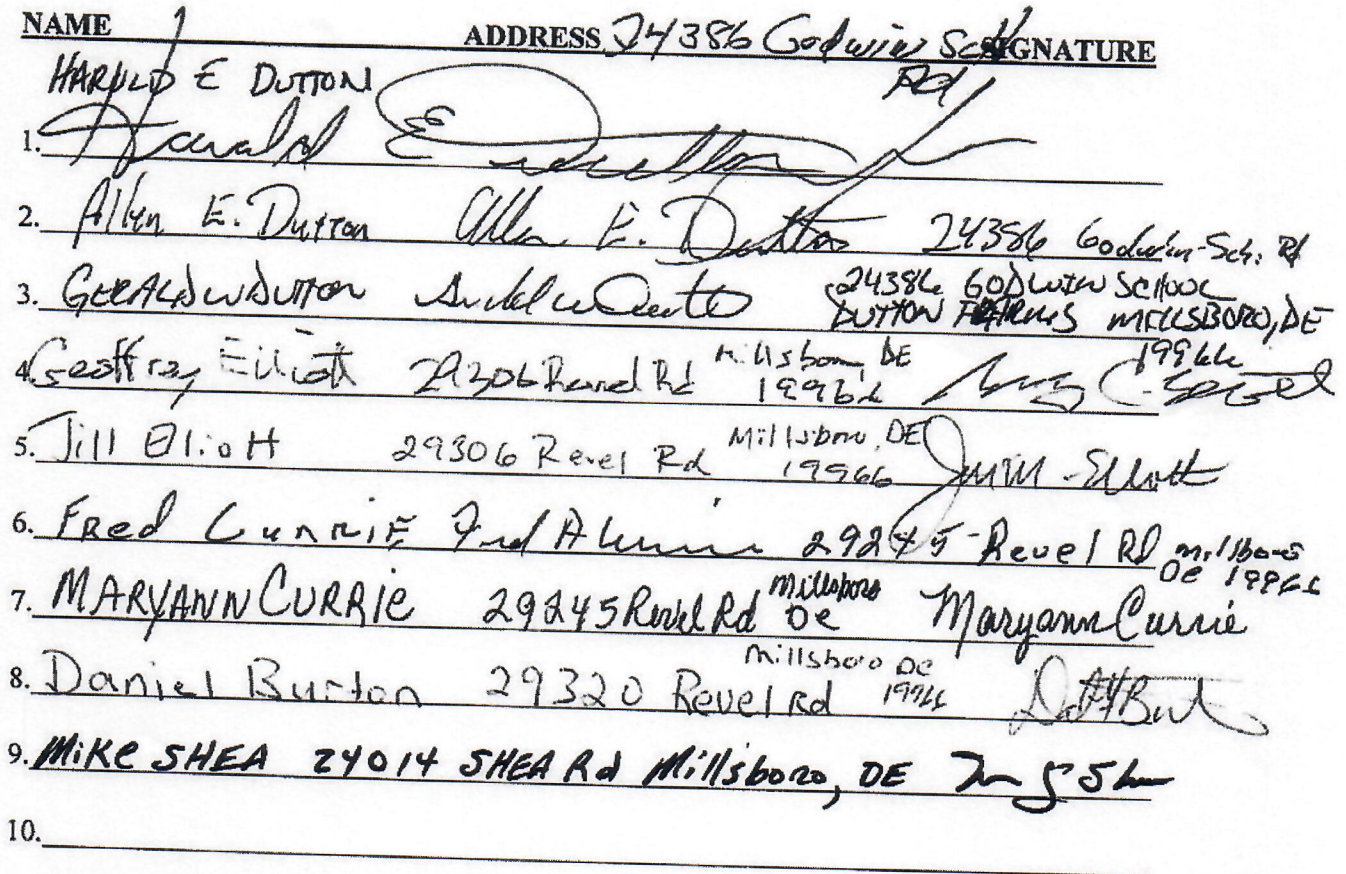 NAME ADDRESS 24386 Godwin Sch SIGNATURE
Rd
HAROLD E DUTTON
1. Harold E Dutton
2. Allyn E. Dutton Allyn E. Dutton 24386 Godwin Sch. Rd
3. GERALD W DUTTON 24386 GODWIN SCHOOL
DUTTON FARMS MILLSBORO, DE
19966
4. Geoffrey Elliott 29306 Revel Rd Millsboro, DE
19966
5. Jill Elliott 29306 Revel Rd Millsboro, DE
19966 Jill M. Elliott
6. FRed CurRIE Fred A Currie 29245 Revel RD Millsboro
De 19966
7. MARYANN CURRIE 29245 Revel Rd Millsboro
De Maryann Currie
8. Daniel Burton 29320 Revel Rd Millsboro DE
19966
9. MIKe SHEA 24014 SHEA Rd Millsboro, DE
10.